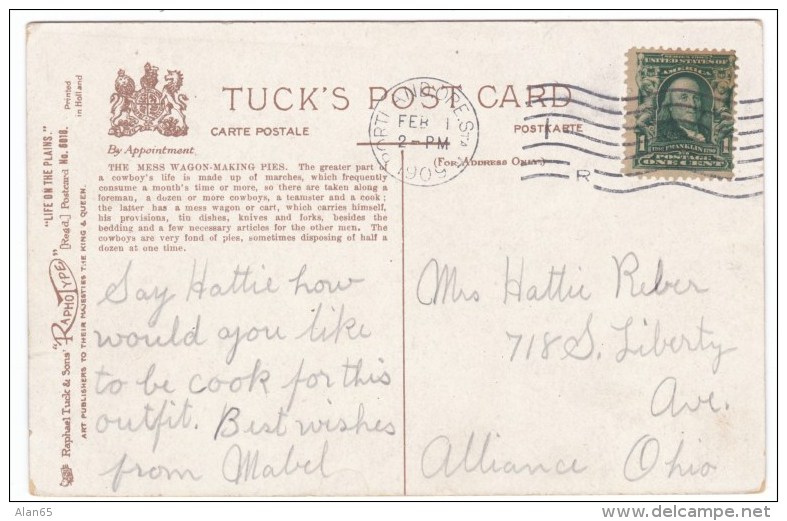 TUCK'S POST CARD
CARTE POSTALE
POSTKARTE
(For Address Only.)
By Appointment
THE MESS WAGON-MAKING PIES. The greater part of
a cowboy's life is made up of marches, which frequently
consume a month's time or more, so there are taken along a
foreman, a dozen or more cowboys, a teamster and a cook;
the latter has a mess wagon or cart, which carries himself,
his provisions, tin dishes, knives and forks, besides the
bedding and a few necessary articles for the other men. The
cowboys are very fond of pies, sometimes disposing of half a
dozen at one time.
Say Hattie how
would you like
to be cook for this
outfit. Best wishes
from Mabel
Mrs Hattie Reber
718 S. Liberty
Ave.
Alliance Ohio
PORTLAND, ORE. STA.
FEB 1
2-PM
1909
R
UNITED STATES OF
AMERICA
1
FRANKLIN
POSTAGE
ONE CENT
Printed
in Holland
"LIFE ON THE PLAINS."
Raphael Tuck & Sons' "RAPHOTYPE" [Regd.] Postcard No. 6010.
ART PUBLISHERS TO THEIR MAJESTIES THE KING & QUEEN.
Alan65
www.delcampe.net